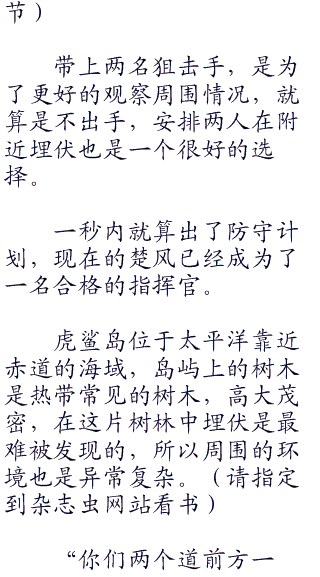 节）
带上两名狙击手，是为
了更好的观察周围情况，就
算是不出手，安排两人在附
近埋伏也是一个很好的选
择。
一秒内就算出了防守计
划，现在的楚风已经成为了
一名合格的指挥官。
虎鲨岛位于太平洋靠近
赤道的海域，岛屿上的树木
是热带常见的树木，高大茂
密，在这片树林中埋伏是最
难被发现的，所以周围的环
境也是异常复杂。（请指定
到杂志虫网站看书）
“你们两个道前方一